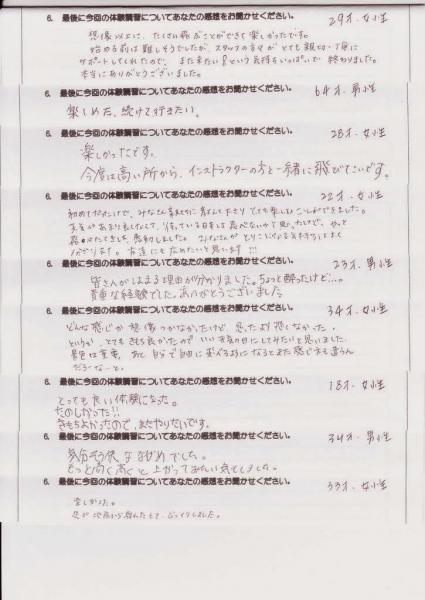 6. 最後に今回の体験講習についてあなたの感想をお聞かせください。 29才・女性
想像以上に、たくさん飛ぶことができて楽しかったです。
始める前は難しそうでしたが、スタッフの方々がとても親切・丁寧に
サポートしてくれたので、また来たい!!という気持ちいっぱいで終わりました。
本当にありがとうございました。
6. 最後に今回の体験講習についてあなたの感想をお聞かせください。 64才・男性
楽しめた、続けて行きたい。
6. 最後に今回の体験講習についてあなたの感想をお聞かせください。 28才・女性
楽しかったです。
今度は高い所から、インストラクターの方と一緒に飛びたいです。
6. 最後に今回の体験講習についてあなたの感想をお聞かせください。 22才・女性
初めてだったけど、みなさん とても楽しむことができました。
感動しました。みなさんが とりこになる気持ちがよく
わかります。友達にもすすめたいと思います!!!
6. 最後に今回の体験講習についてあなたの感想をお聞かせください。 23才・男性
皆さんがはまる理由が分かりました。ちょっと酔ったけど…。
貴重な経験でした。ありがとうございました
6. 最後に今回の体験講習についてあなたの感想をお聞かせください。 34才・女性
どんな感じか想像つかなかったけど、思ったより怖くなかった。
というか、とてもきもち良かったので いい 夜の日にしてみたいと思いました。
景色は重要、あと自分で自由に飛べるようになるとまた感じ方も違うん
だろーなーと。
6. 最後に今回の体験講習についてあなたの感想をお聞かせください。 18才・女性
とっても良い体験になった。
たのしかった!!
きもちよかったので、またやりたいです。
6. 最後に今回の体験講習についてあなたの感想をお聞かせください。 34才・男性
気分そう快なながめでした。
もっと高く高くと上がってみたい気がしました。
6. 最後に今回の体験講習についてあなたの感想をお聞かせください。 33才・女性
楽しかった。
足が地面から離れたとき、びっくりしました。